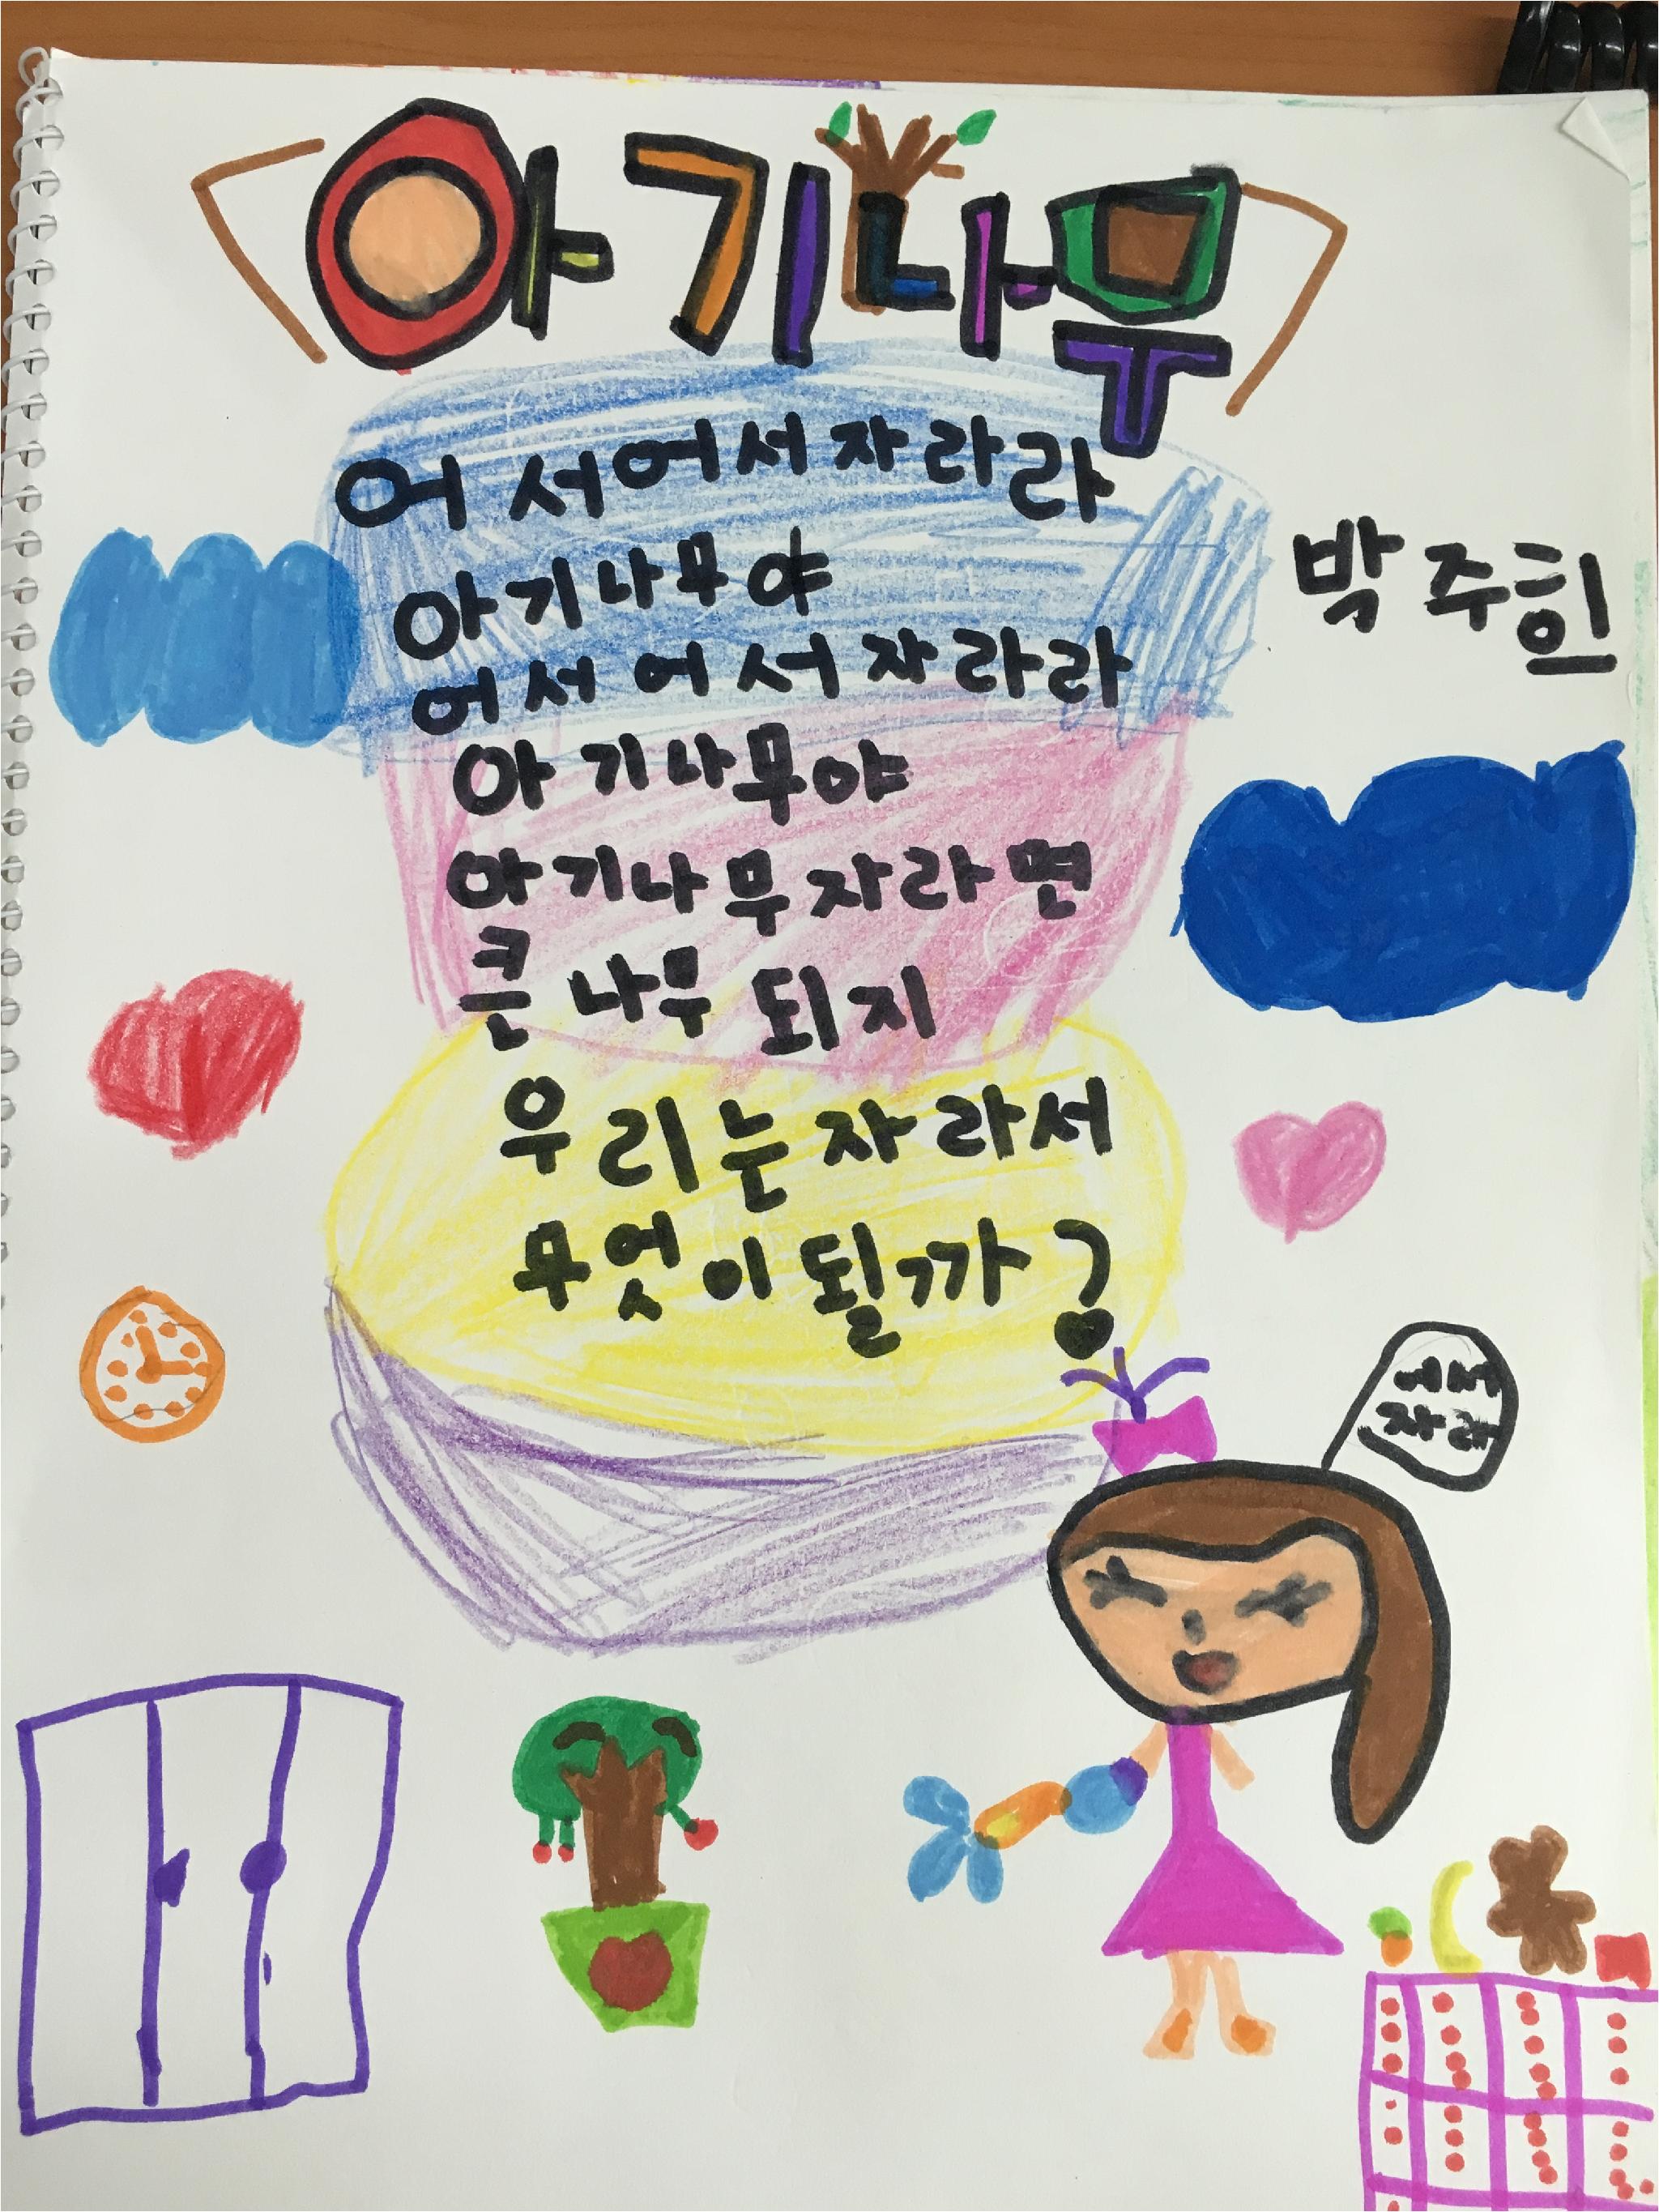 <아기나무>
어서어서자라라
박주희
아기나무야
어서어서자라라
아기나무야
아기나무자라면
큰나무되지
우리는자라서
무엇이될까?
어서
자라